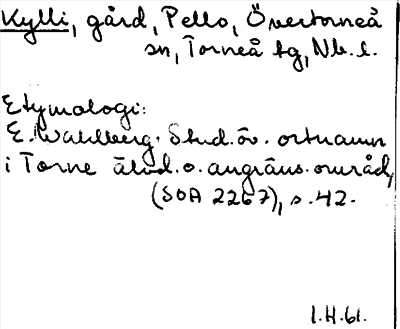 Kylli, gård, Pello, Övertorneå
sn, Torneå tg, Nb. l.
Etymologi:
E. Wahlberg. Stud. öv. ortnamn
i Torne älvd. o. angräns. områd,
(SOA 2267), s. 42.
1.H.61.